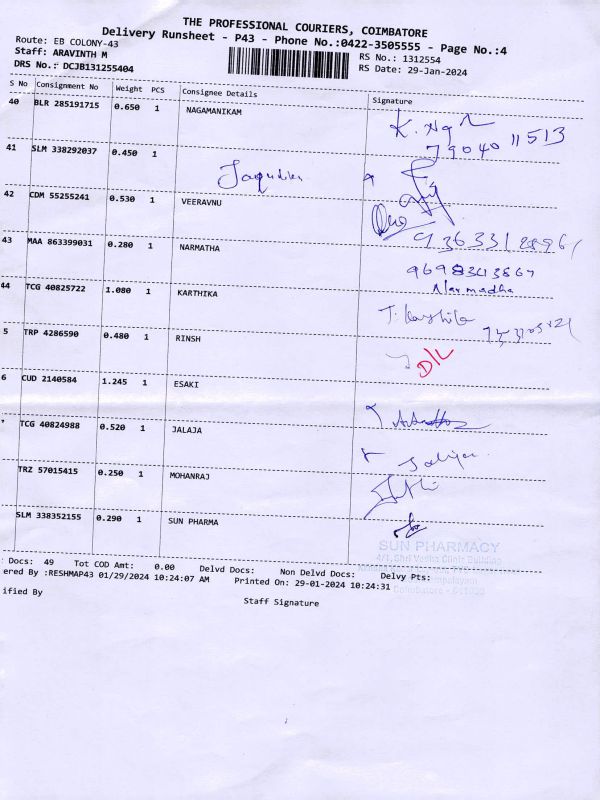 THE PROFESSIONAL COURIERS, COIMBATORE
Delivery Runsheet - P43 - Phone No.:0422-3505555 - Page No.:4
Route: EB COLONY-43
RS No.: 1312554
Staff: ARAVINTH M
RS Date: 29-Jan-2024
DRS No.: DCJB131255404
S No Consignment No Weight PCS Consignee Details Signature
40 BLR 285191715 0.650 1 NAGAMANIKAM
41 SLM 338292037 0.450 1
42 CDM 55255241 0.530 1 VEERAVNU
43 MAA 863399031 0.280 1 NARMATHA
Narmadha
44 TCG 40825722 1.080 1 KARTHIKA
5 TRP 4286590 0.480 1 RINSH
D/L
6 CUD 2140584 1.245 1 ESAKI
TCG 40824988 0.520 1 JALAJA
TRZ 57015415 0.250 1 MOHANRAJ
SLM 338352155 0.290 1 SUN PHARMA
SUN PHARMACY
Docs: 49 Tot COD Amt: 0.00 Delvd Docs: Non Delvd Docs: Delvy Pts:
ered By :RESHMAP43 01/29/2024 10:24:07 AM Printed On: 29-01-2024 10:24:31
ified By
Staff Signature